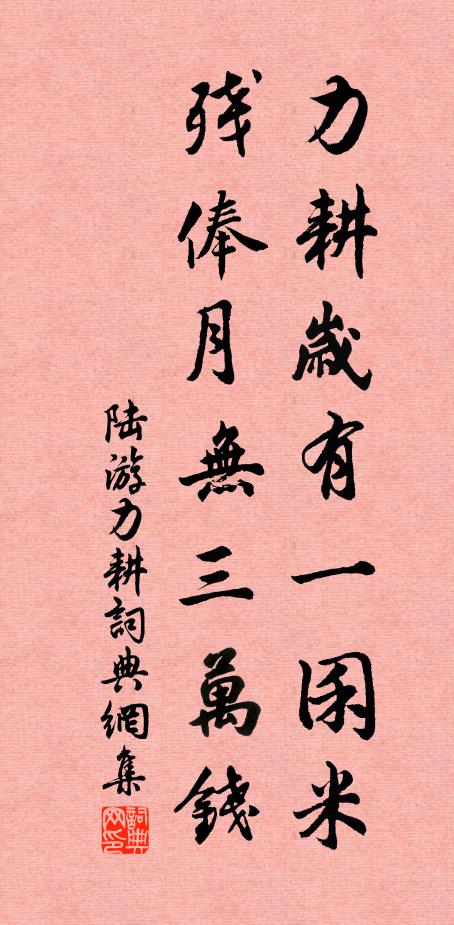 力耕歲有一囷米
殘俸月無三萬錢
陸游力耕詞典網集
詞典
网印